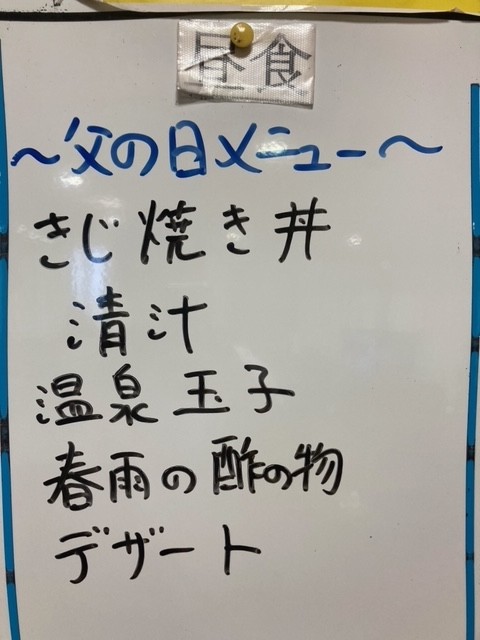 昼食
～父の日メニュー～
きじ焼き丼
清汁
温泉玉子
春雨の酢の物
デザート